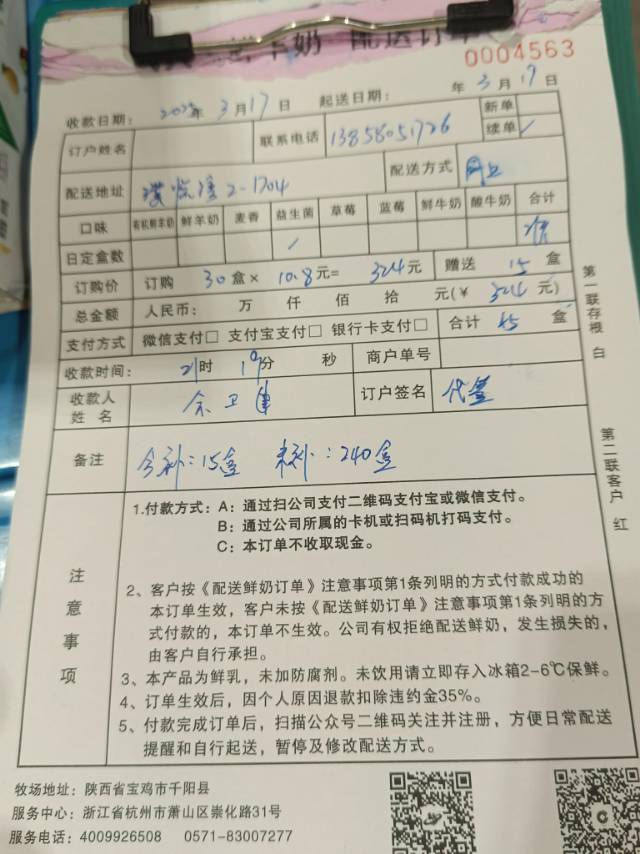 卡奶 配送订单
0004563
收款日期: 年 3 月 17 日 起送日期: 年 3 月 19 日
订户姓名 联系电话 13858051726 新单
续单 /
配送地址 2-1704 配送方式
口味 有机鲜羊奶 鲜羊奶 麦香 益生菌 草莓 蓝莓 鲜牛奶 酸牛奶 合计
日定盒数 /
订购价 订购 30 盒× 10.8 元= 324 元 赠送 15 盒
总金额 人民币: 万 仟 佰 拾 元(¥ 324 元)
支付方式 微信支付□ 支付宝支付□ 银行卡支付□ 合计 45 盒
收款时间: 21 时 19 分 秒 商户单号
收款人姓名 余卫 订户签名 代签
备注 今补:15盒 未补:240盒
第一联存根 白
第二联客户 红
注意事项
1.付款方式: A: 通过扫公司支付二维码支付宝或微信支付。
B: 通过公司所属的卡机或扫码机打码支付。
C: 本订单不收取现金。
2、客户按《配送鲜奶订单》注意事项第1条列明的方式付款成功的
本订单生效,客户未按《配送鲜奶订单》注意事项第1条列明的方
式付款的,本订单不生效。公司有权拒绝配送鲜奶,发生损失的,
由客户自行承担。
3、本产品为鲜乳,未加防腐剂。未饮用请立即存入冰箱2-6℃保鲜。
4、订单生效后,因个人原因退款扣除违约金35%。
5、付款完成订单后,扫描公众号二维码关注并注册,方便日常配送
提醒和自行起送,暂停及修改配送方式。
牧场地址: 陕西省宝鸡市千阳县
服务中心: 浙江省杭州市萧山区崇化路31号
服务电话: 4009926508 0571-83007277